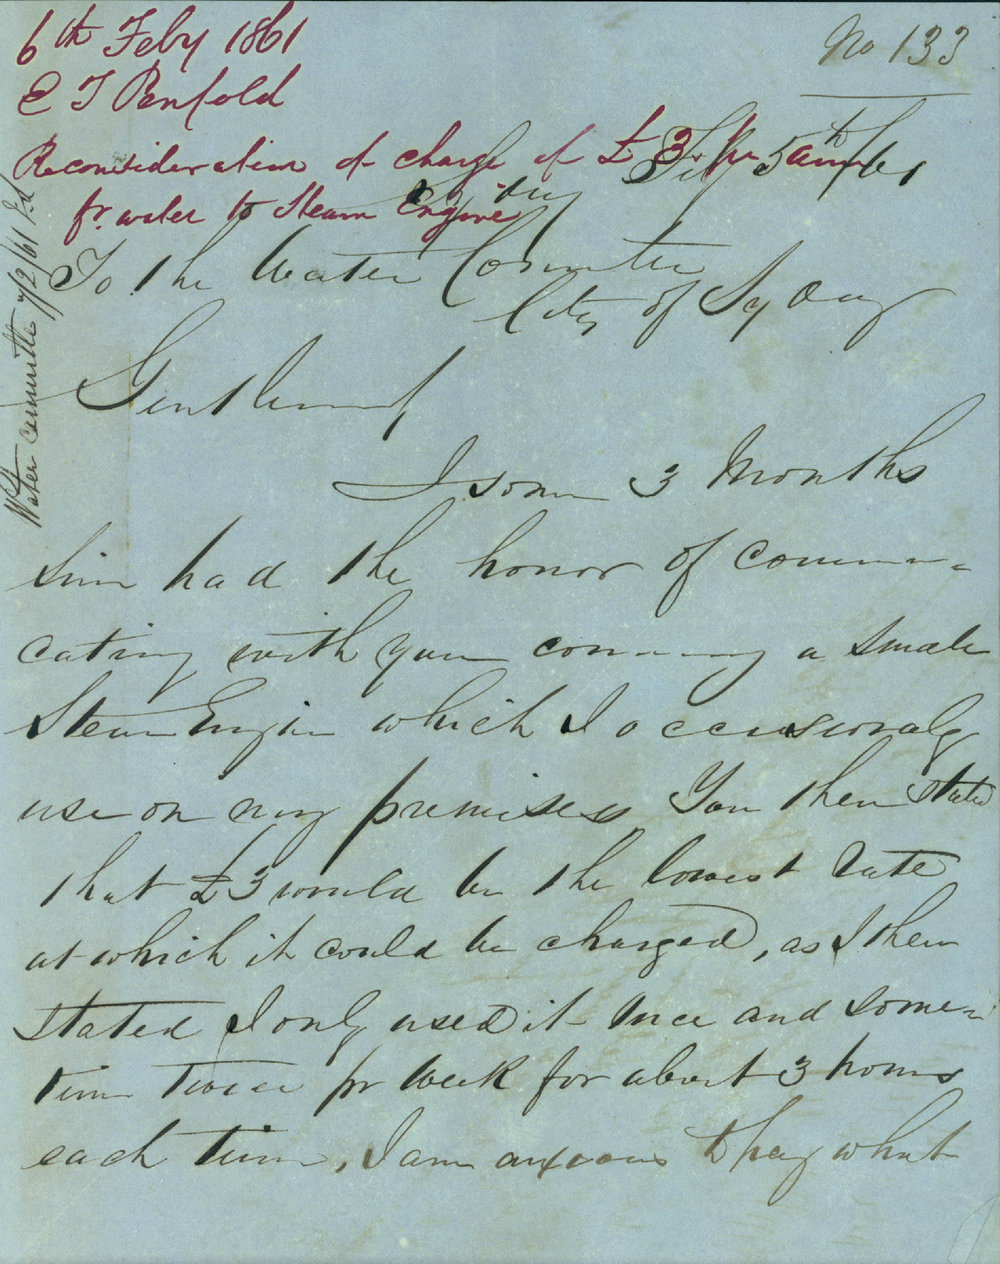 6th Feby 1861
No 133
E T Penfold
Reconsideration of charge of £3. pr ann
fr. water to Steam Engine
Sydney Feby 5th /61
Water Committee 7/2/61
To the Water Committee
City of Sydney
Gentlemen
I some 3 Months
Sinc had the honor of commu-
cating with you concerning a small
Steam Engin which I occasionaly
use on my premises You then stated
that £3 would be the lowest rate
at which it could be charged, as I then
stated I only used it once and some-
time twice pr Week for about 3 hours
each time, I am anxious to pay what